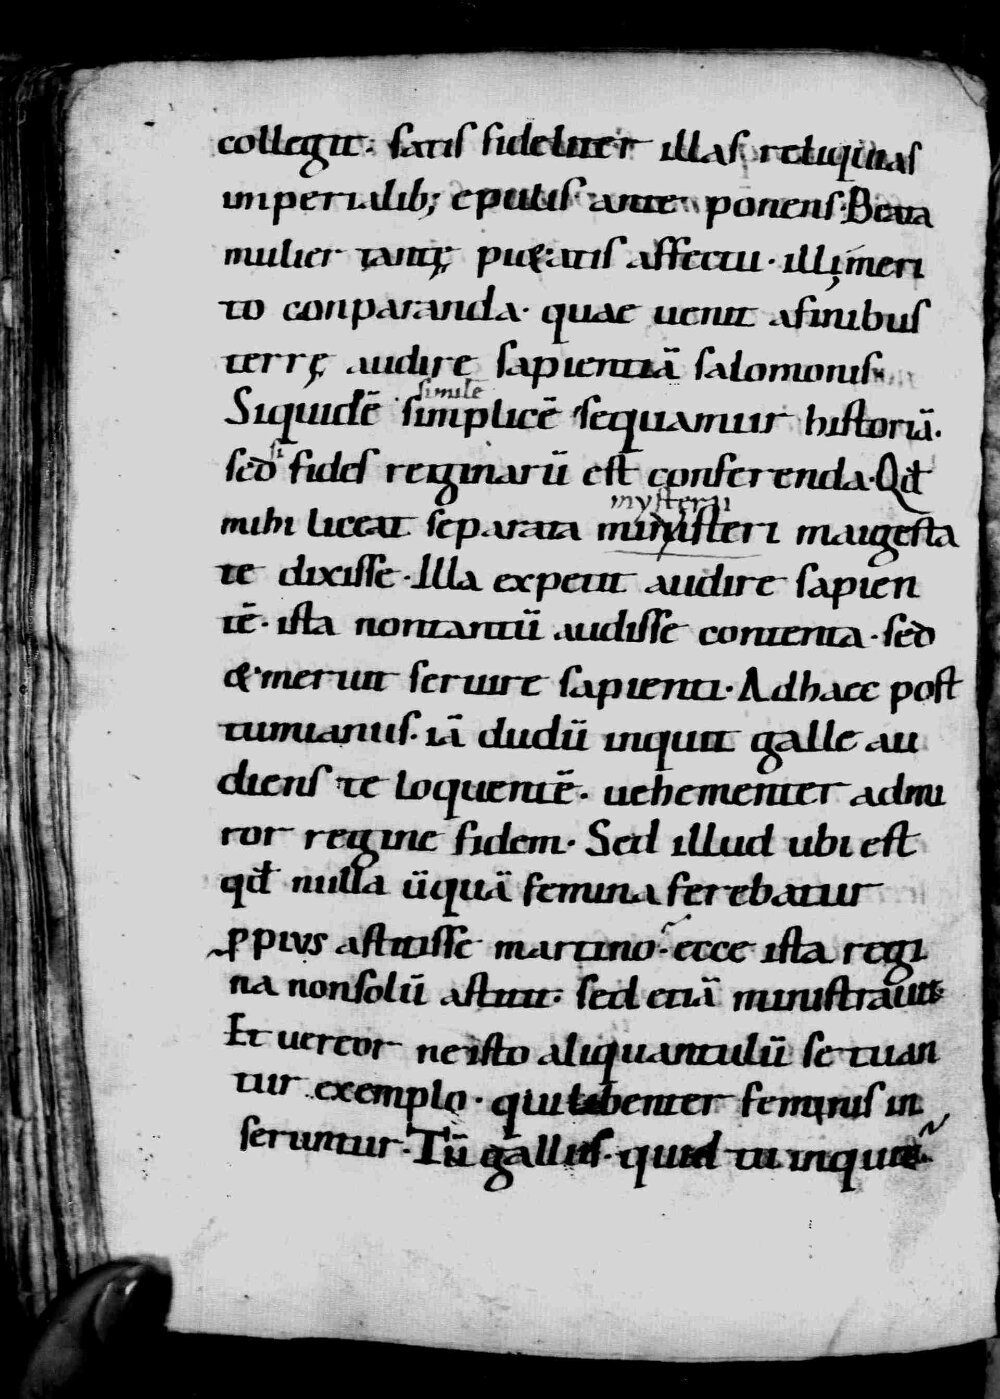 collegit. satis fideliter illas reliquias
imperialib; epulis ante ponens. Beata
mulier tantę pietatis affectu. illi meri
to conparanda. quae uenit afinibus
terrę audire sapientiā salomonis
simile
Siquidē simplicē sequamur historiā.
sed si fides reginarū est conferenda. Qđ
mysterii
mihi liceat separata ministeri maigesta
te dixisse. Illa expetiit audire sapien
tē. ista nontantū audisse contenta. sed
& meruit seruire sapienti. Adhaec post
tumianus. iā dudū inquit galle au
diens te loquentē. uehementer admi
ror regine fidem. Sed illud ubi est
qđ nulla ūquā femina ferebatur
ꝓpius astitisse martino. ecce ista regi
na nonsolū astitit. sed etiā ministrauit
Et uereor neisto aliquantulū se tuan
tur exemplo. qui libenter feminis in
seruntur. Tū gallus. quid tu inquit